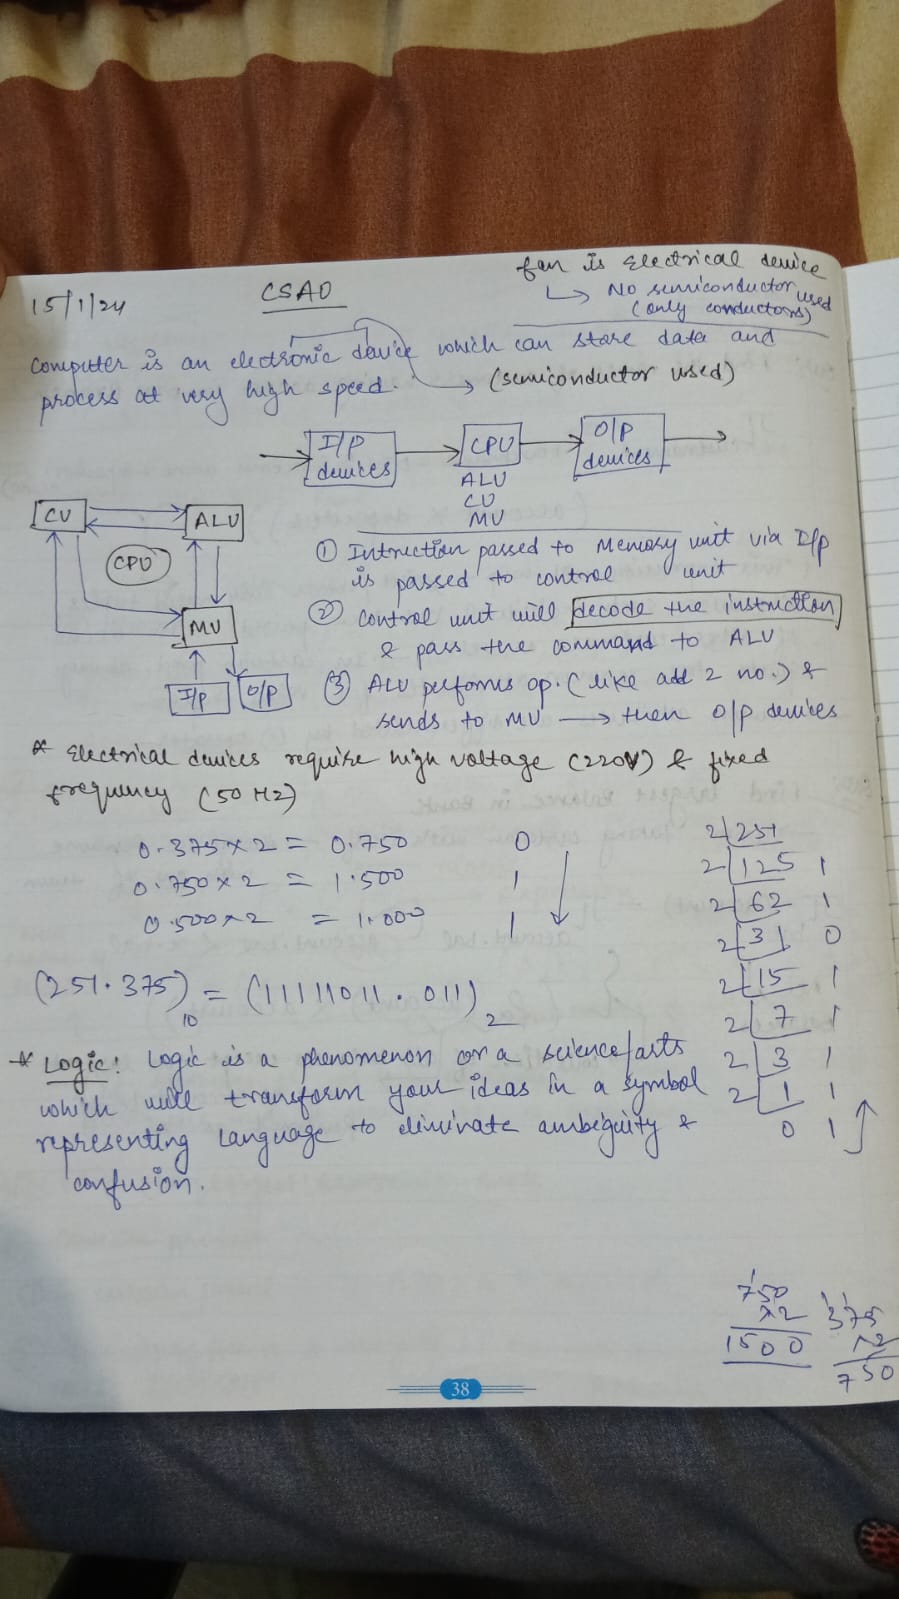 15/1/24
CSAO
fan is Electrical device
↳ No semiconductor used
(only conductors)
Computer is an electronic device which can store data and
process at very high speed. → (semiconductor used)
I/P devices → CPU → O/P devices
ALU
CU
MU
CU
ALU
CPU
MU
I/P
O/P
① Intruction passed to Memory unit via I/p
is passed to control unit
② Control unit will decode the instruction
& pass the command to ALU
③ ALU performs op. (like add 2 no.) &
sends to MU → then O/p devices
* Electrical devices require high voltage (220V) & fixed
frequency (50 Hz)
0.375 × 2 = 0.750 0
0.750 × 2 = 1.500 1
0.500 × 2 = 1.000 1
2 251
2 125 1
2 62 1
2 31 0
2 15 1
2 7 1
2 3 1
2 1 1
0 1
(251.375)10 = (11111011.011)2
* Logic: Logic is a phenomenon or a science/arts
which will transform your ideas in a symbol
representing language to eliminate ambiguity &
confusion.
750
×2
1500
375
×2
750
38